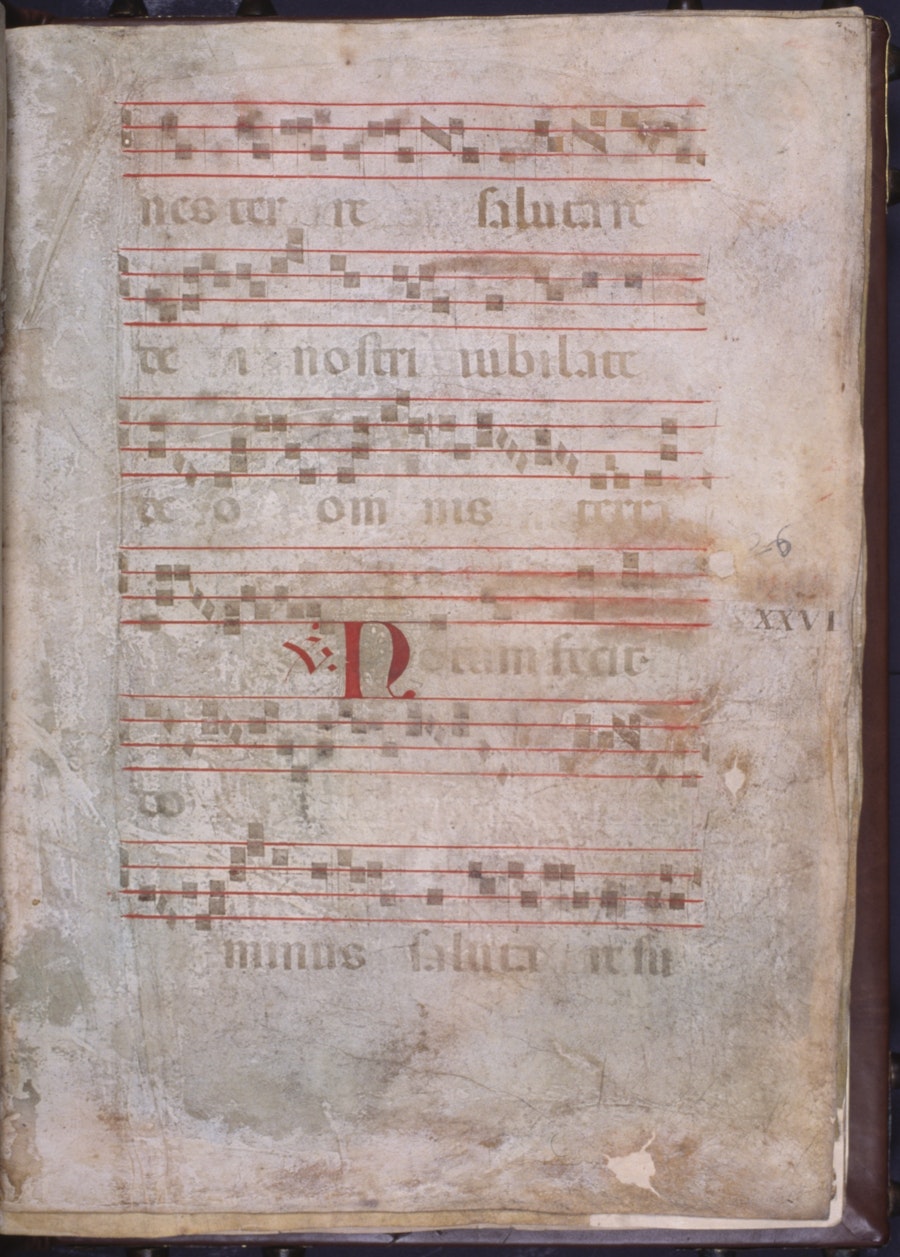 nes ter re salutare
de i nostri iubilate
de o om nis terra
26
XXVI
℣. Notum fecit
do
minus saluta re su